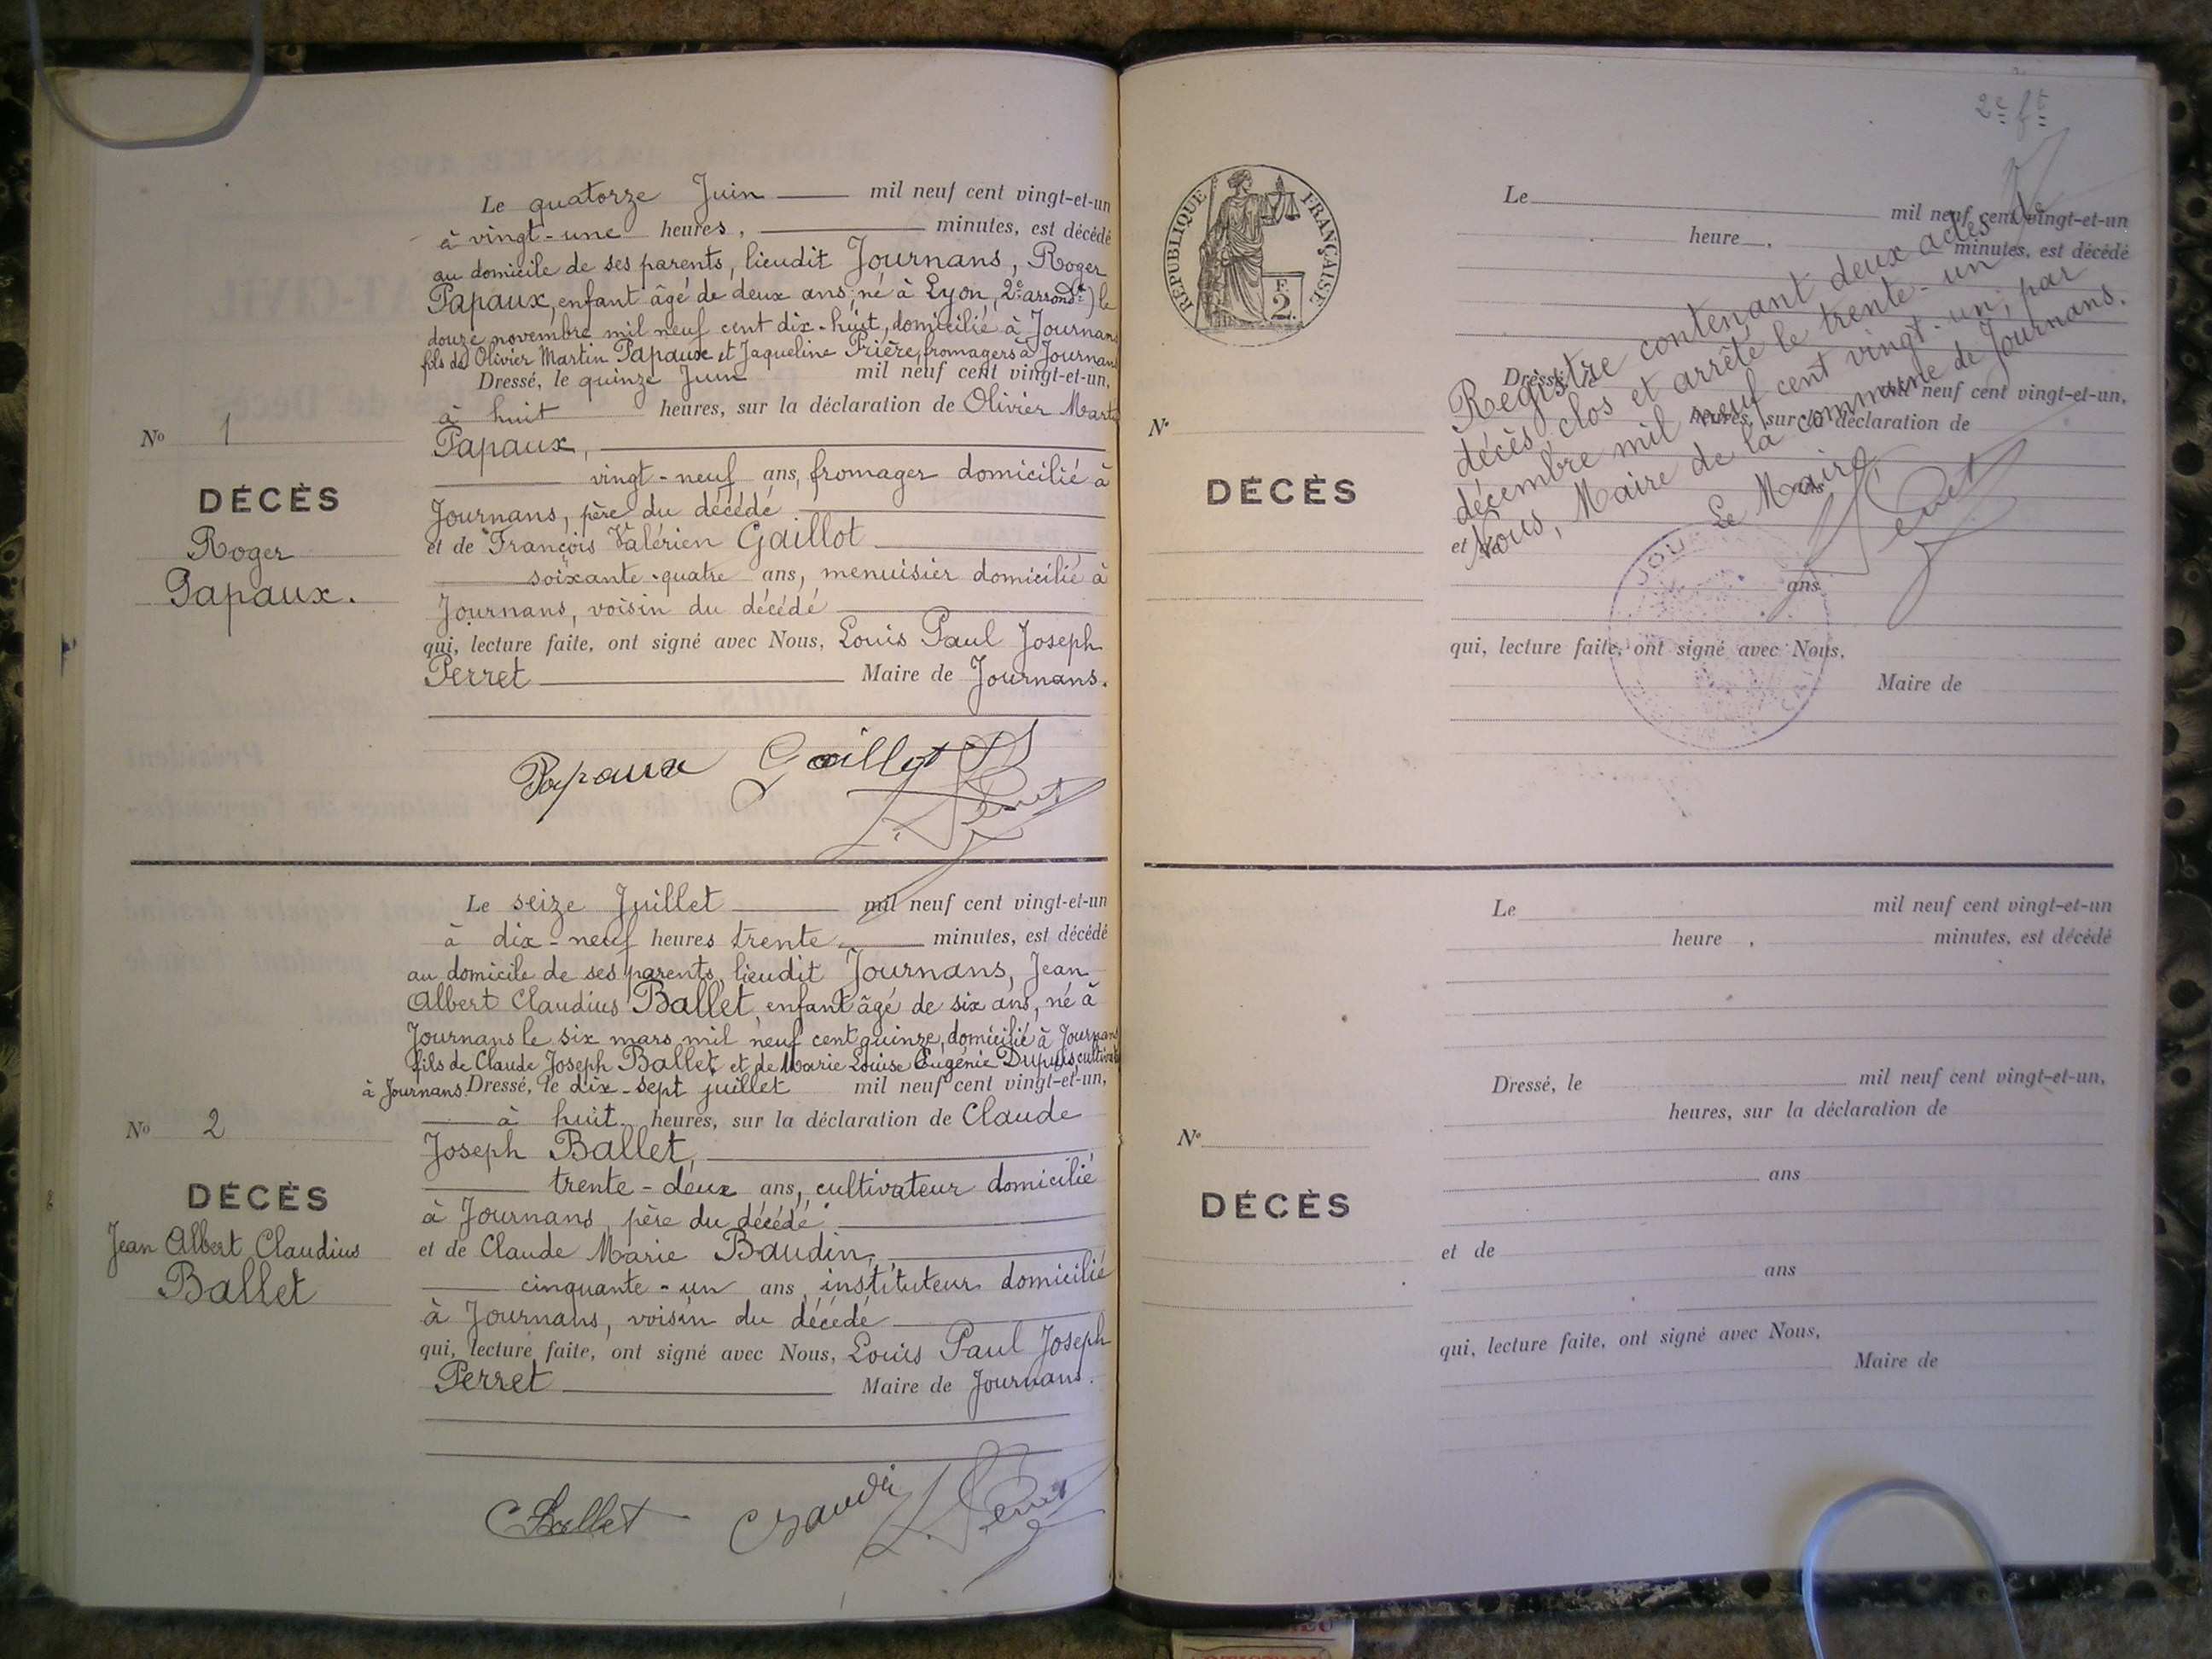 Le quatorze Juin mil neuf cent vingt-et-un
à vingt-une heures, minutes, est décédé
au domicile de ses parents, lieudit Journans, Roger
Papaux, enfant âgé de deux ans, né à Lyon, (2e arrondt) le
douze novembre mil neuf cent dix-huit, domicilié à Journans
fils de Olivier Martin Papaux et Jaqueline Prière, fromagers à Journans
Dressé, le quinze Juin mil neuf cent vingt-et-un,
à huit heures, sur la déclaration de Olivier Mart
No 1
Papaux,
vingt-neuf ans, fromager domicilié à
DÉCÈS
Journans, père du décédé
Roger
et de François Valérien Gaillot
Papaux.
soixante-quatre ans, menuisier domicilié à
Journans, voisin du décédé
qui, lecture faite, ont signé avec Nous, Louis Paul Joseph
Perret Maire de Journans.
Papaux Gaillot
L. Perret
Le seize Juillet mil neuf cent vingt-et-un
à dix-neuf heures trente minutes, est décédé
au domicile de ses parents, lieudit Journans, Jean
Albert Claudius Ballet, enfant âgé de six ans, né à
Journans le six mars mil neuf cent quinze, domicilié à Journans
fils de Claude Joseph Ballet et de Marie Louise Eugénie Dupuis, cultivat
à Journans. Dressé, le dix-sept juillet mil neuf cent vingt-et-un,
à huit heures, sur la déclaration de Claude
No 2
Joseph Ballet,
trente-deux ans, cultivateur domicilié
DÉCÈS
à Journans, père du décédé
Jean Albert Claudius
et de Claude Marie Baudin,
Ballet
cinquante-un ans, instituteur domicilié
à Journans, voisin du décédé
qui, lecture faite, ont signé avec Nous, Louis Paul Joseph
Perret Maire de Journans.
CBallet CBaudin L. Perret
2e ft
RÉPUBLIQUE FRANÇAISE
F.
2.
Le mil neuf cent vingt-et-un
heure , minutes, est décédé
Registre contenant deux actes de
décès, clos et arrêté le trente-un
décembre mil neuf cent vingt-un, par
Nous, Maire de la commune de Journans.
Le Maire
L. Perret
Dressé, le mil neuf cent vingt-et-un,
heures, sur la déclaration de
No
DÉCÈS
et de
ans
qui, lecture faite, ont signé avec Nous,
Maire de
Le mil neuf cent vingt-et-un
heure , minutes, est décédé
Dressé, le mil neuf cent vingt-et-un,
heures, sur la déclaration de
No
ans
DÉCÈS
et de
ans
qui, lecture faite, ont signé avec Nous,
Maire de